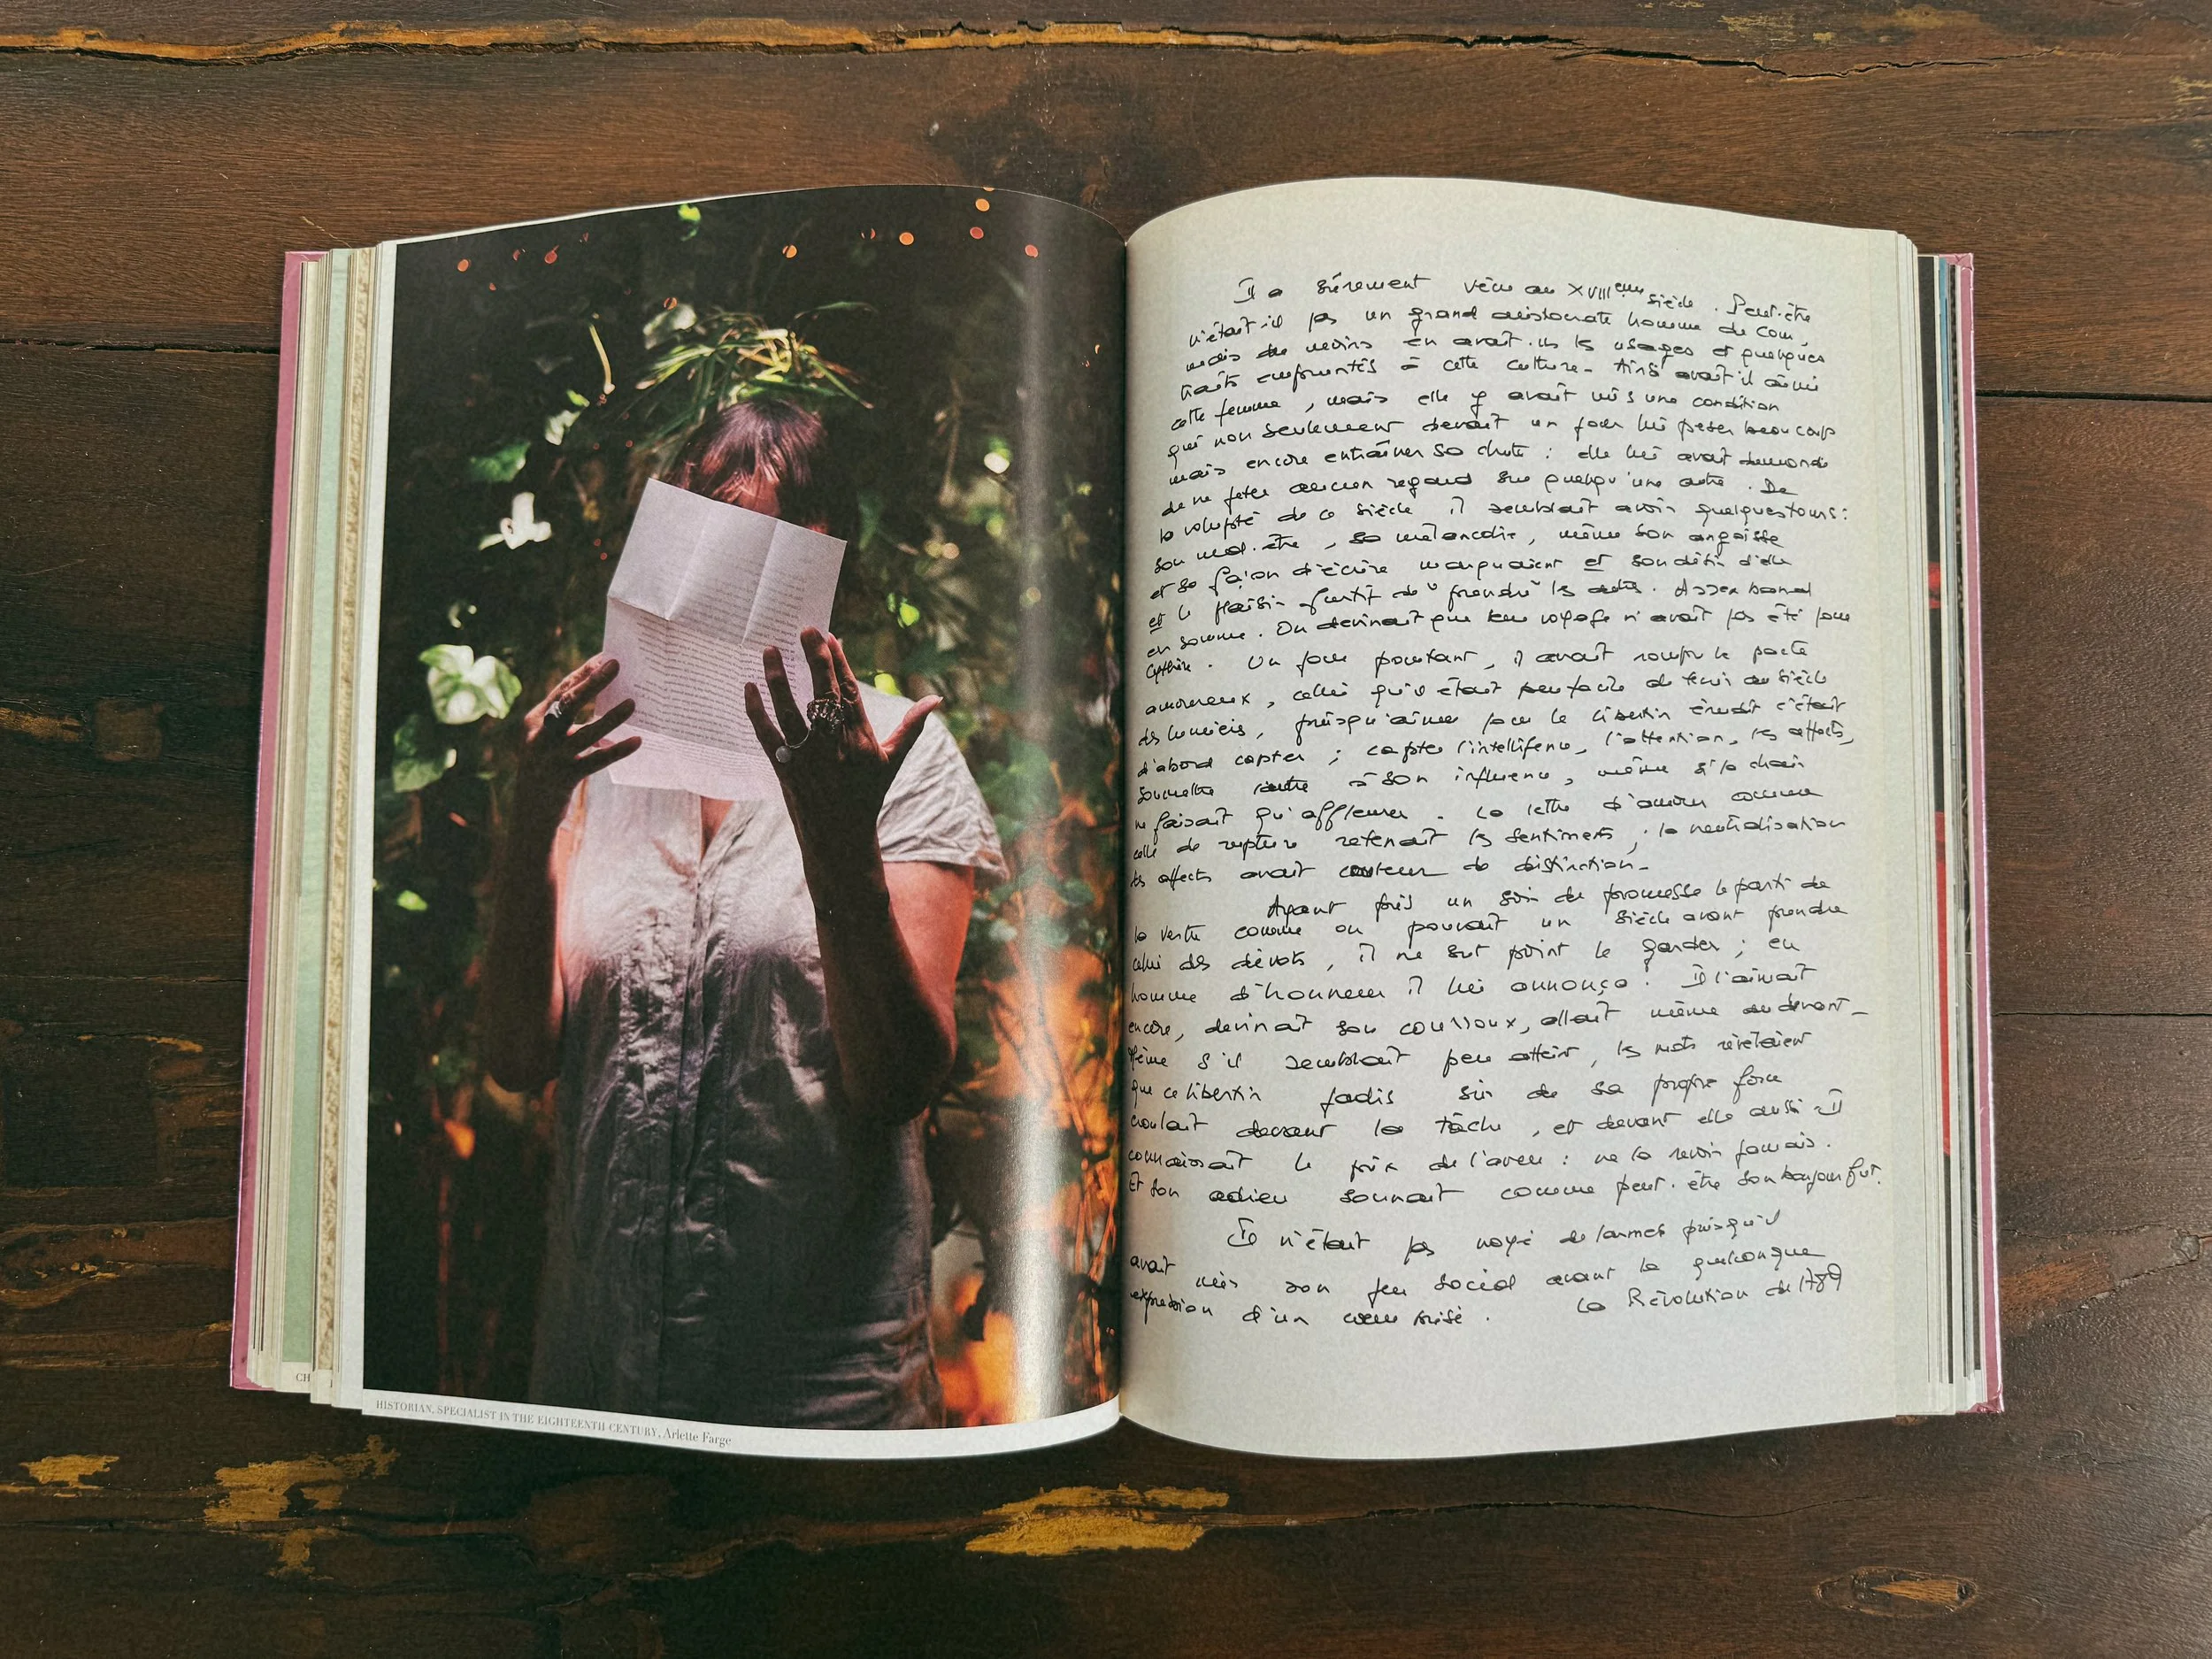 CH
HISTORIAN, SPECIALIST IN THE EIGHTEENTH CENTURY, Arlette Farge
Il a sûrement vécu au XVIIIeme siècle. Peut-être
n'était-il pas un grand aristocrate homme de cour,
mais du moins en avait-il les usages et quelques
traits empruntés à cette culture. Ainsi avait-il aimé
cette femme, mais elle y avait mis une condition
qui non seulement devait un jour lui peser beaucoup
mais encore entraîner sa chute : elle lui avait demandé
de ne jeter aucun regard sur quelqu'une autre. De
la volupté de ce siècle il semblait avoir quelques tours :
son mal-être, sa mélancolie, même son angoisse
et sa façon d'écrire marquaient et son désir d'elle
et le plaisir furtif de "prendre" les autres. Assez banal
en somme. On devinait que leur voyage n'avait pas été pour
Cythère. Un jour pourtant, il avait rompu le pacte
amoureux, celui qu'il était peu facile de tenir au siècle
des lumières, puisqu'aimer pour le libertin érudit c'était
d'abord capter ; capter l'intelligence, l'attention, les affects,
soumettre l'autre à son influence, même si la chair
ne faisait qu'affleurer. La lettre d'amour comme
celle de rupture retenait les sentiments ; la neutralisation
des affects avait couleur de distinction.
Ayant pris un soir de promesse le parti de
la vertu comme on pouvait un siècle avant prendre
celui des dévots, il ne sut point le garder ; en
homme d'honneur il lui annonça. Il l'aimait
encore, devinait son courroux, allait même au devant.
Même s'il semblait peu atteint, les mots révélaient
que ce libertin jadis sûr de sa propre force
croulait devant la tâche, et devant elle aussi. Il
connaissait le prix de l'aveu : ne la revoir jamais.
Et son adieu sonnait comme peut-être son bonjour fut.
Il n'était pas noyé de larmes puisqu'il
avait mis son jeu social avant la quelconque
expression d'un cœur brisé. La Révolution de 1789